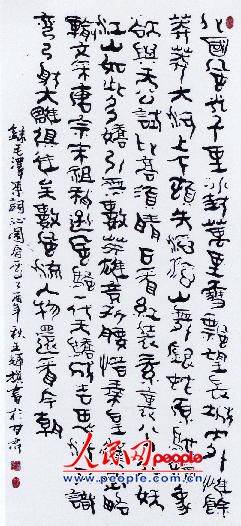 北國風光千里冰封萬里雪飄望長城內外惟餘
莽莽大河上下頓失滔滔山舞銀蛇原馳蠟象
欲與天公試比高須晴日看紅裝素裹分外妖
江山如此多嬌引無數英雄競折腰惜秦皇漢武略
輸文采唐宗宋祖稍遜風騷一代天驕成吉思汗只識
彎弓射大雕俱往矣數風流人物還看今朝
錄毛澤東詞沁園春雪丁酉年秋王
人民网
people.com.cn